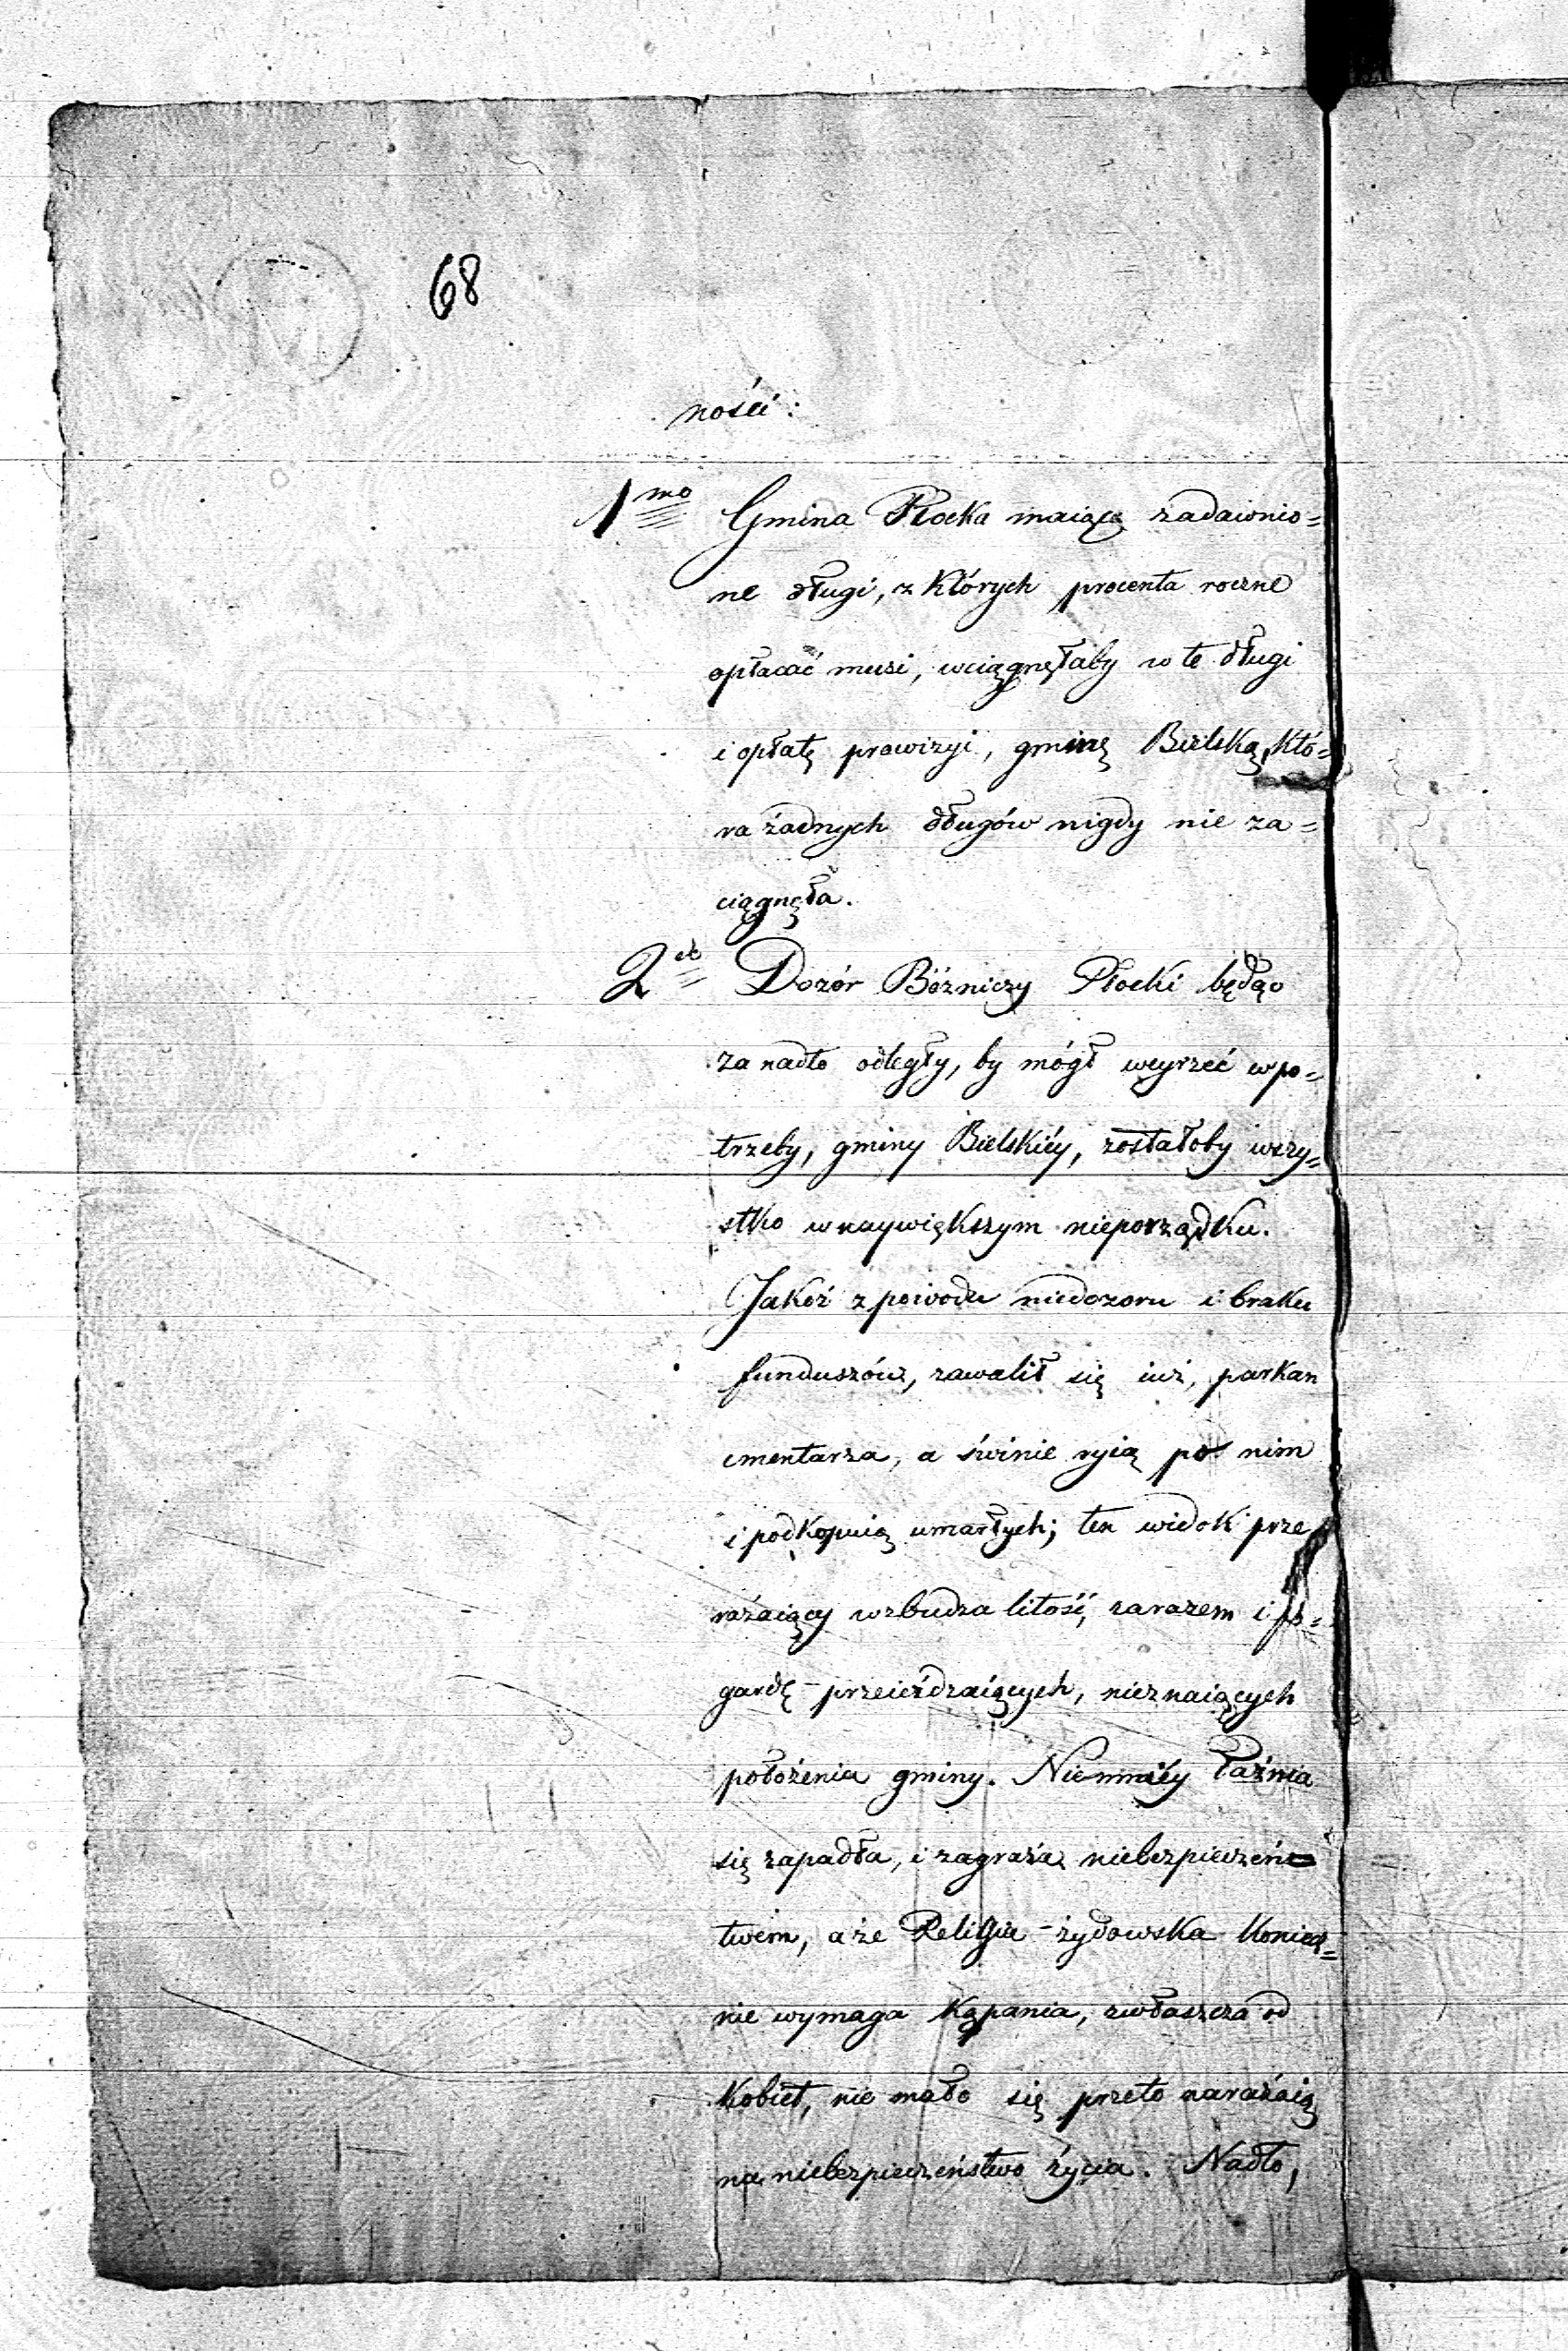 68
ności:
1mo Gmina Płocka maiąca zadawnio=
ne długi, z których procenta roczne
opłacać musi, wciągnęłaby w te długi
i opłatę prowizyi, gminę Bielską, któ=
ra żadnych długów nigdy nie za=
ciągnęła.
2do Dozór Bóżniczy Płocki będąc
za nadto odległy, by mógł weyrzeć w po=
trzeby, gminy Bielskiéy, zostałoby wszy=
stko w naywiększym nieporządku.
Jakoż z powodu niedozoru i braku
funduszów, zawalił się iuż, parkan
cmentarza, a świnie ryią po nim
i podkopuią umarłych; ten widok prze
rażaiący wzbudza litość, zarazem i po=
gardę przeieżdzaiących, nieznaiących
położenia gminy. Niemniéy łaźnia
się zapadła, i zagraża niebezpieczeńs
twem, a że Religia żydowska koniecz=
nie wymaga kąpania, zwłaszcza od
kobiet, nie mało się przeto narażaią
na niebezpieczeństwo życia. Nadto,